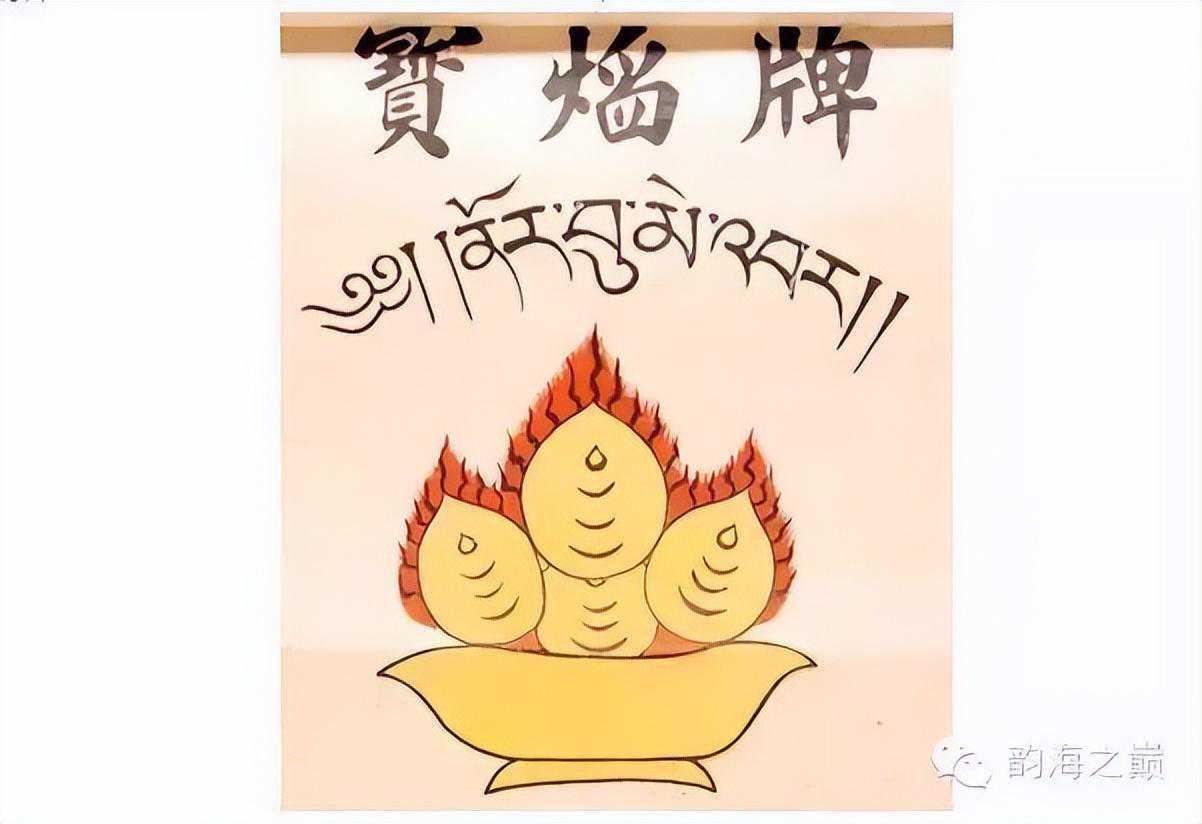 寶熖牌
༄༅། །ནོར་བུ་མེ་འབར།།
韵海之巅